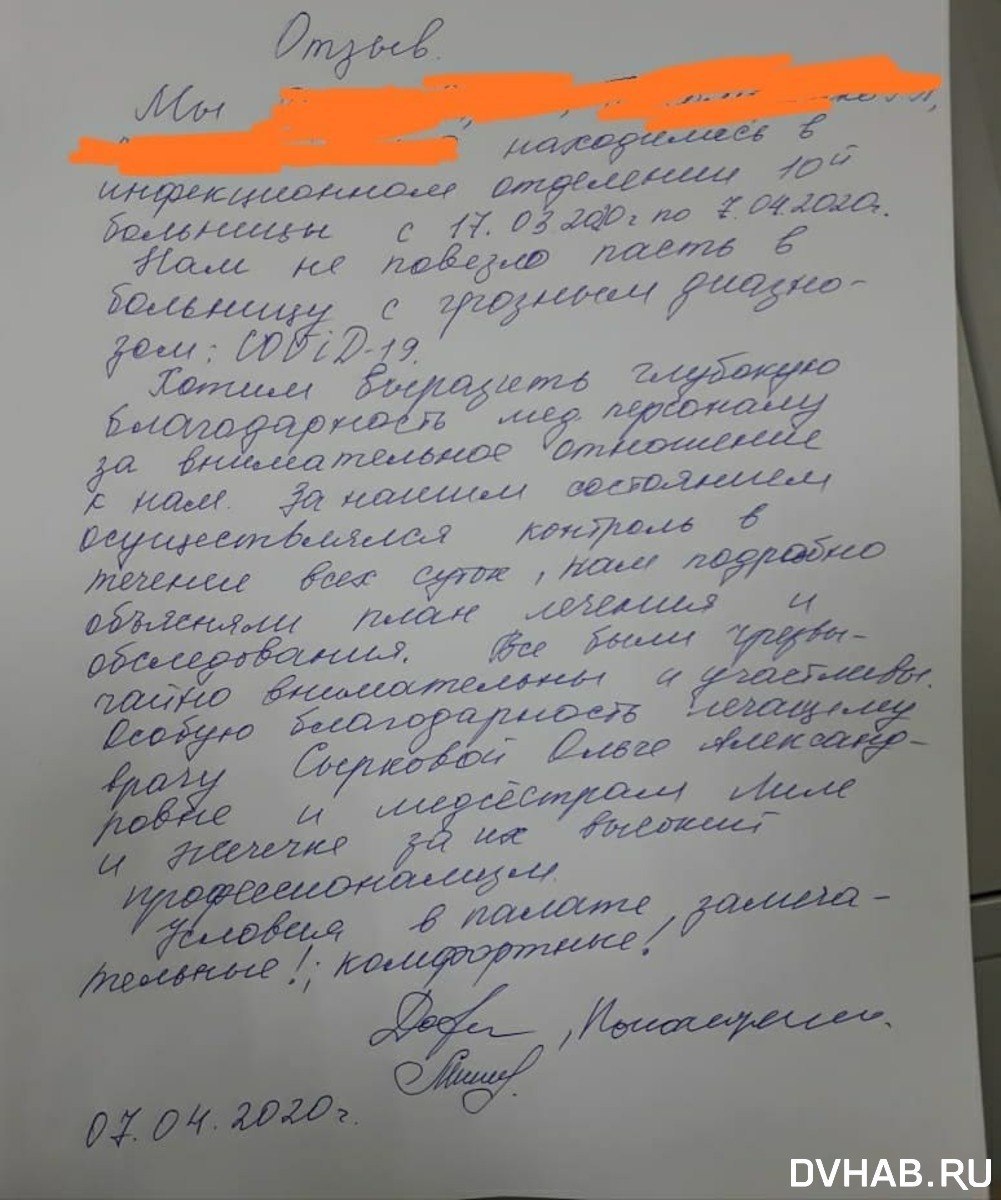 Отзыв.
Мы
находились в
инфекционном отделении 10й
больницы с 17.03 2020г по 7.04.2020г.
Нам не повезло пасть в
больницу с грозным диагно-
зом: COViD-19.
Хотим выразить глубокую
благодарность мед. персоналу
за внимательное отношение
к нам. За нашим состоянием
осуществлялся контроль в
течении всех суток, нам подробно
объясняли план лечения и
обследования. Все были чрезвы-
чайно внимательны и участливы.
Особую благодарность лечащему
врачу Сырковой Ольге Александ-
ровне и медсёстрам Лиле
и Жечечке за их высокий
профессионализм.
Условия в палате замеча-
тельные!; комфортные!
07.04.2020г.
DVHAB.RU